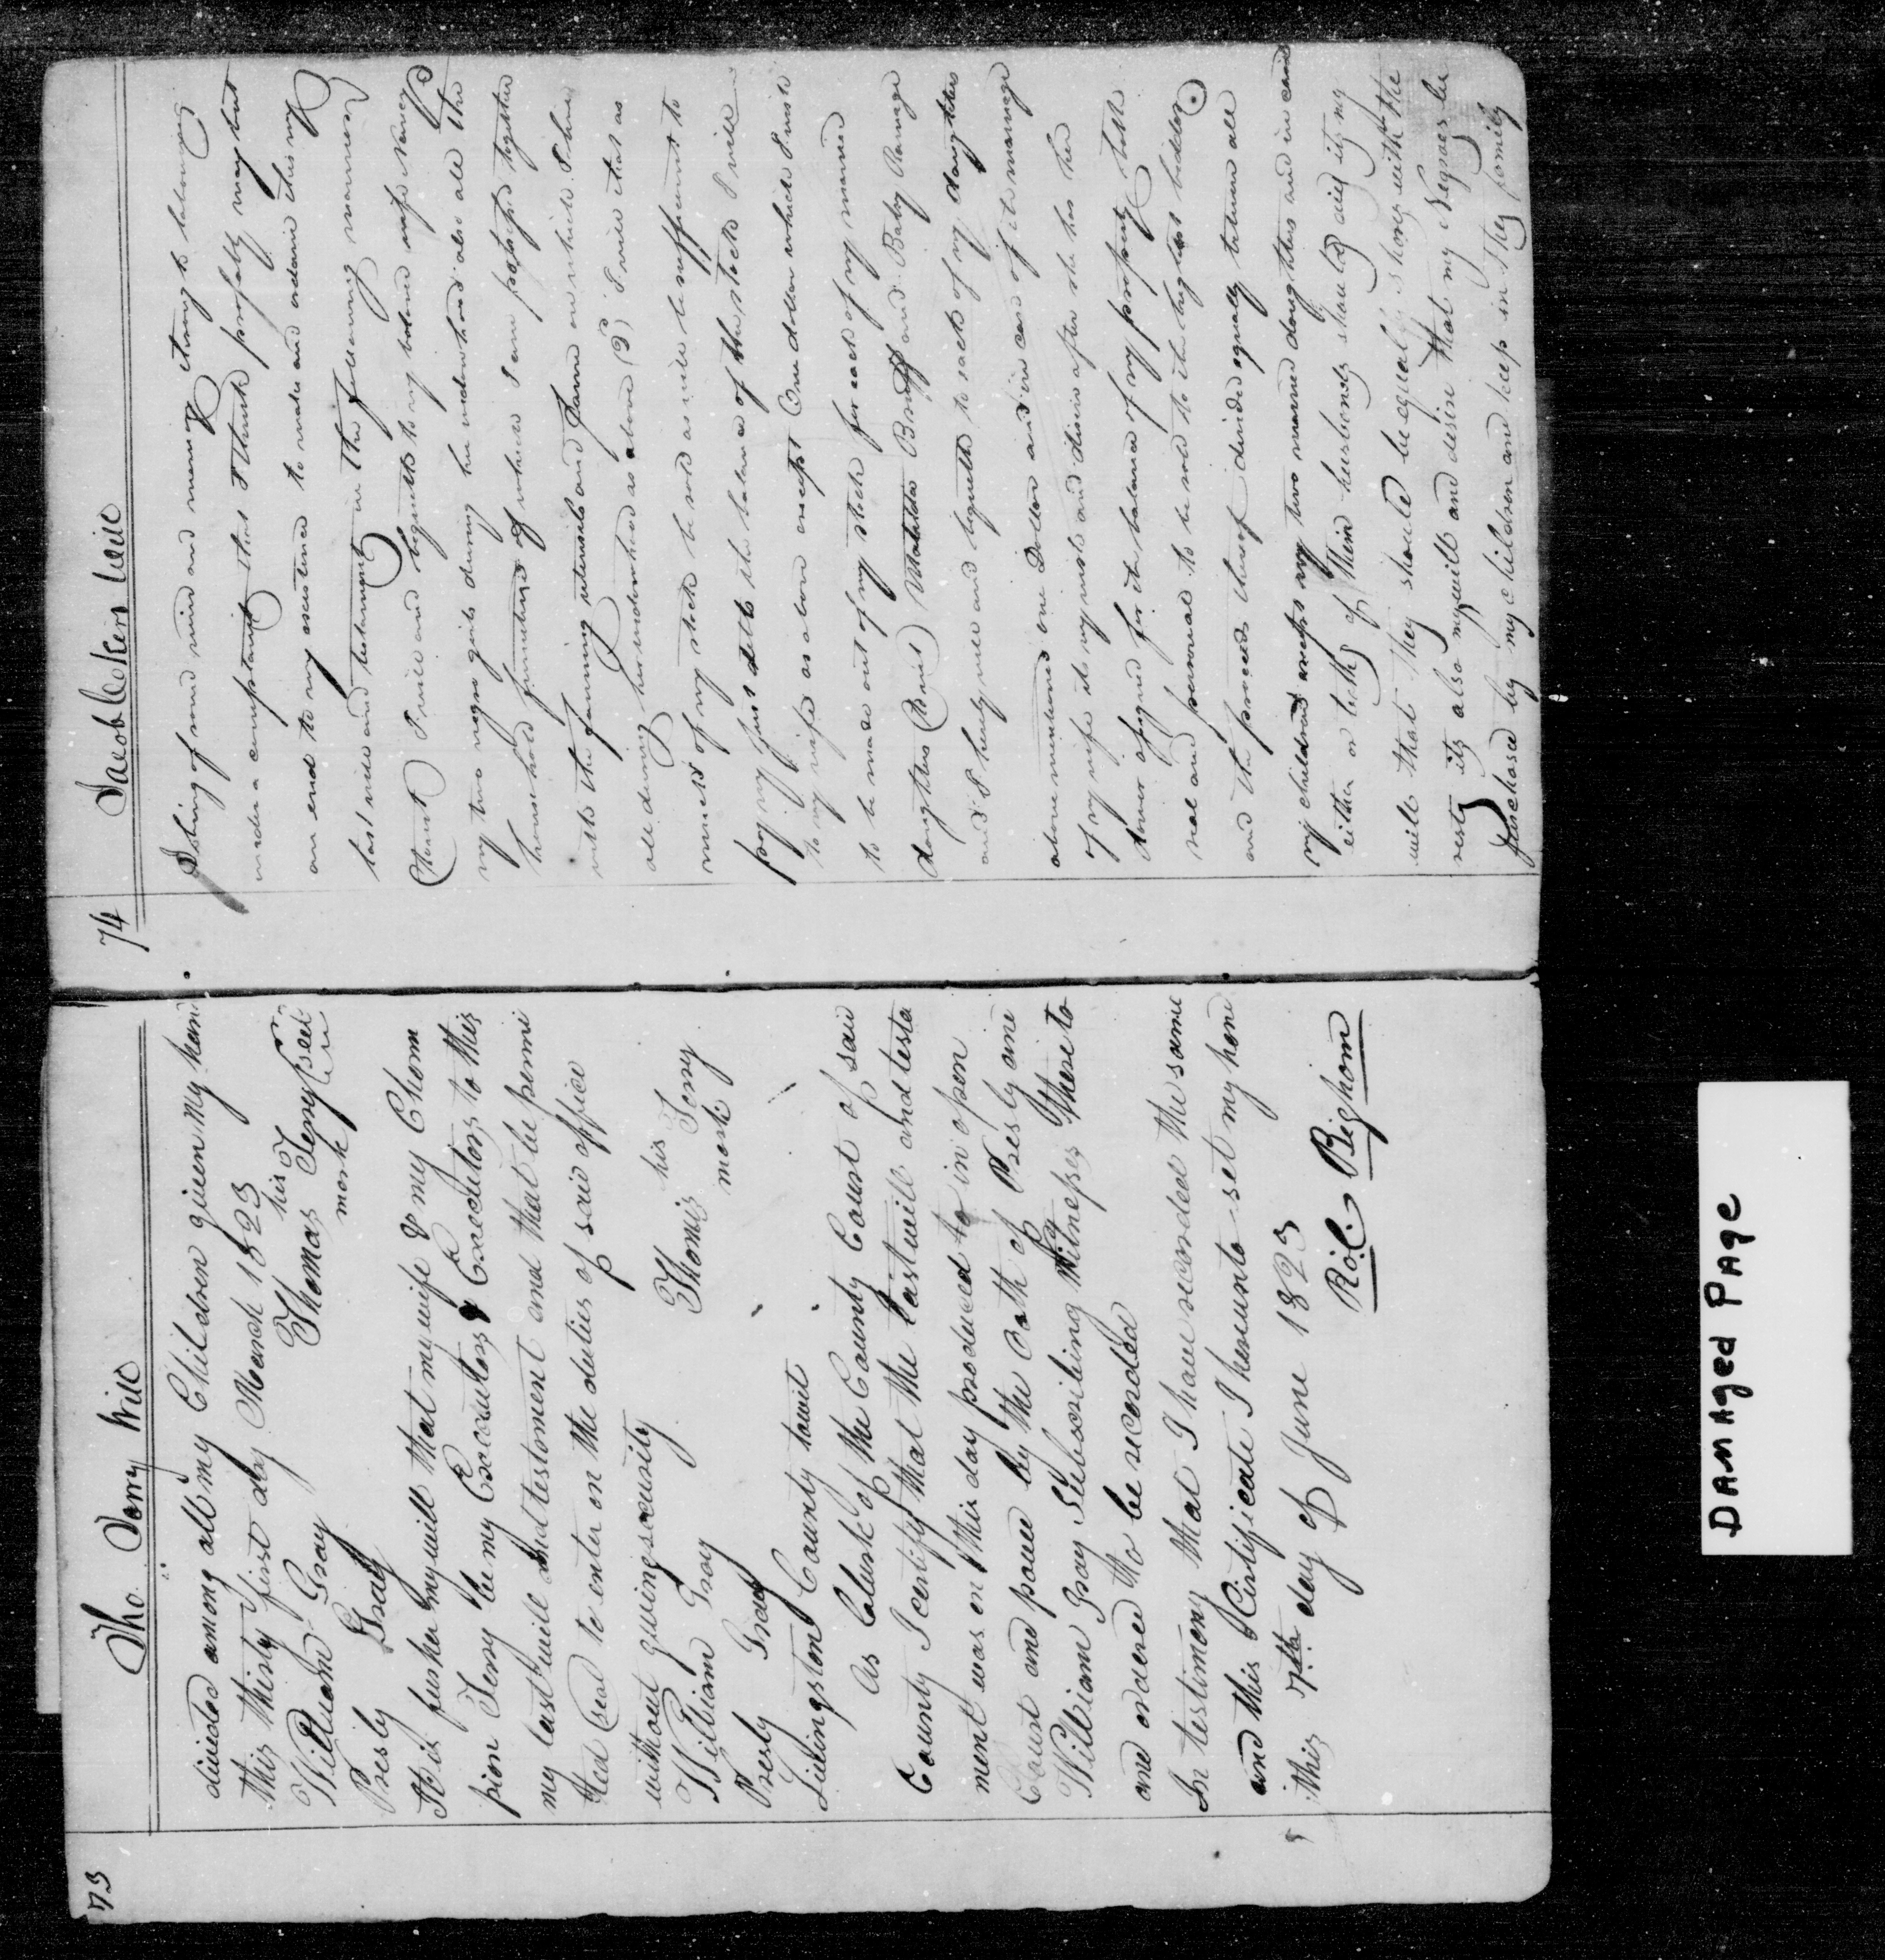 73
Tho. Terry Will
divided among all my Children given my hand
this thirty first day March 1823
William Gray Thomas his Terry seal
Presly Gray mark
It is further my will that my wife & my Cham
pion Terry be my Executors & Executors to this
my last will and testament and that be permi
tted to enter on the duties of said office
without giving security
William Gray Thomis his Terry
Presly Gray mark
Livingston County towit
As Clerk of the County Court of said
County I certify that the last will and testa
ment was on this day produced to in open
Court and proved by the oath of Presly and
William Gray Subscribing Witnesses thereto
and ordered to be recorded
In testimony that I have recorded the same
and this Certificate I hereunto set my hand
this 7th day of June 1823
Bigham
74
Jacob Cokers Will
I being of sound mind and memory
under a complaint that I think probably may put
an end to my existence to make and ordain this my
last will and testament in the following manner
I will and bequeath to my beloved wife Nancy
my two negro girls during her widowhood also all the
household furniture of which I am possessed together
with the farming utensils and farm on which I live
all during her widowhood as above I will that as
much of my stock be sold as will be sufficient to
pay my just debts the balance of the stock I will
to my wife as above except One dollar which I wish
to be made out of my stock for each of my married
daughters Matilda and Ramage
and I hereby will and bequeath to each of my daughters
above mentioned one Dollar and in case of the marriage
of my wife it is my wish and desire after she has her
dower assigned for the balance of my property both
real and personal to be sold to the highest bidder
and the proceeds thereof divided equally between all
my children except my two married daughters and in case
either or both of their husbands should die its my
will that they should be equally with the
rest its also my will and desire that my Negroes be
purchased by my children and keep in They family
DAMAged PAge